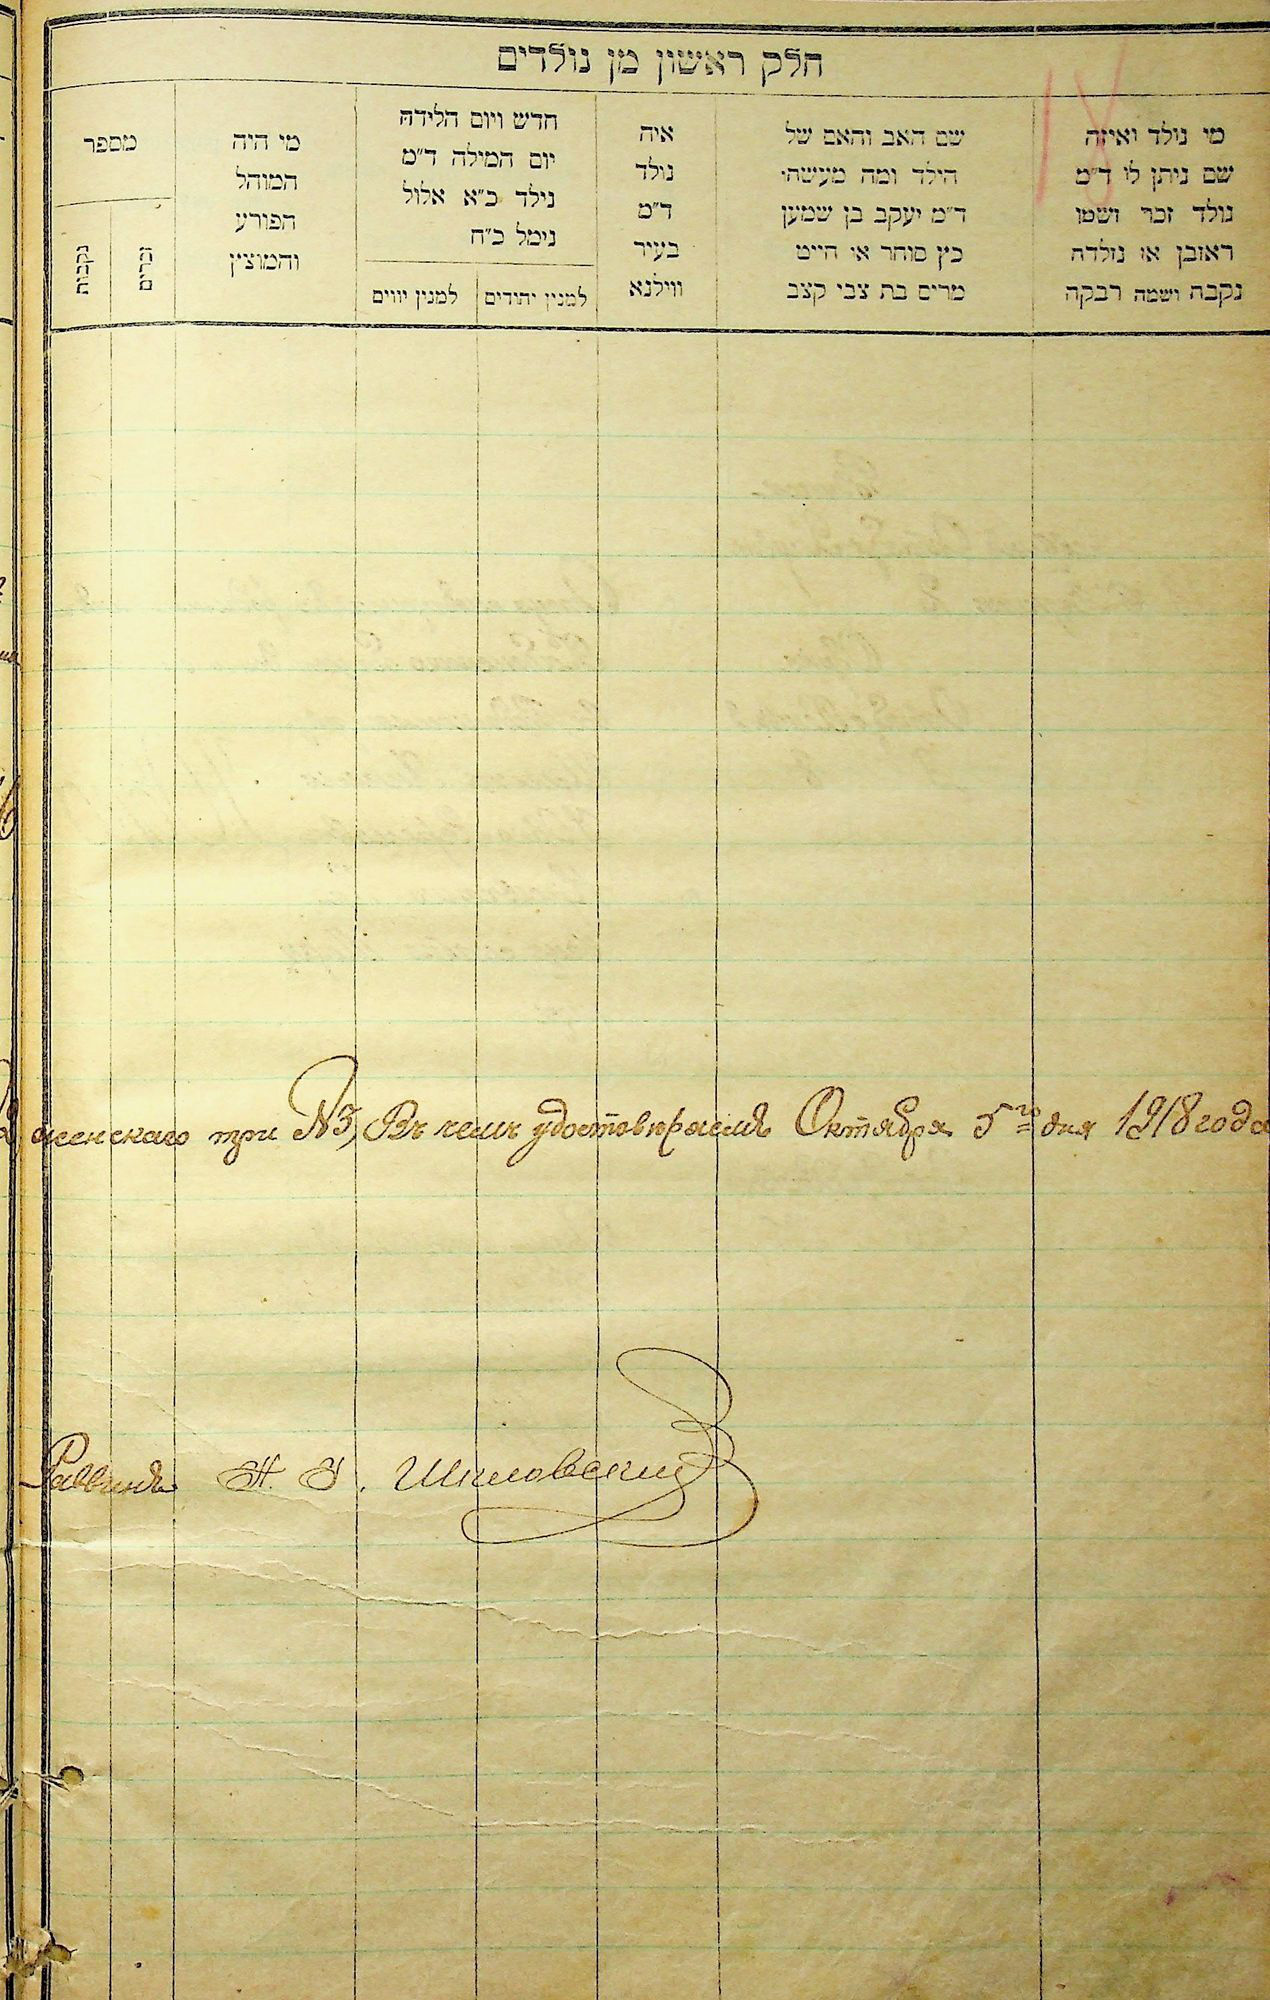 חלק ראשון מן נולדים
18
מי נולד ואיזה
שם ניתן לו ד״מ
נולד זכר ושמו
ראובן או נולדה
נקבה ושמה רבקה
שם האב והאם של
הילד ומה מעשהו
ד״מ יעקב בן שמען
כץ סוחר או חייט
מרים בת צבי קצב
איה
נולד
ד״מ
בעיר
ווילנא
חדש ויום הלידה
יום המילה ד״מ
נילד כ״א אלול
נימל כ״ח
למנין יהודים
למנין יווים
מי היה
המוהל
הפורע
והמוצץ
מספר
זכרים
נקבות
женскаго три №3, Въ чемъ удостовѣряемъ Октября 5го дня 1918 года
Раввинъ